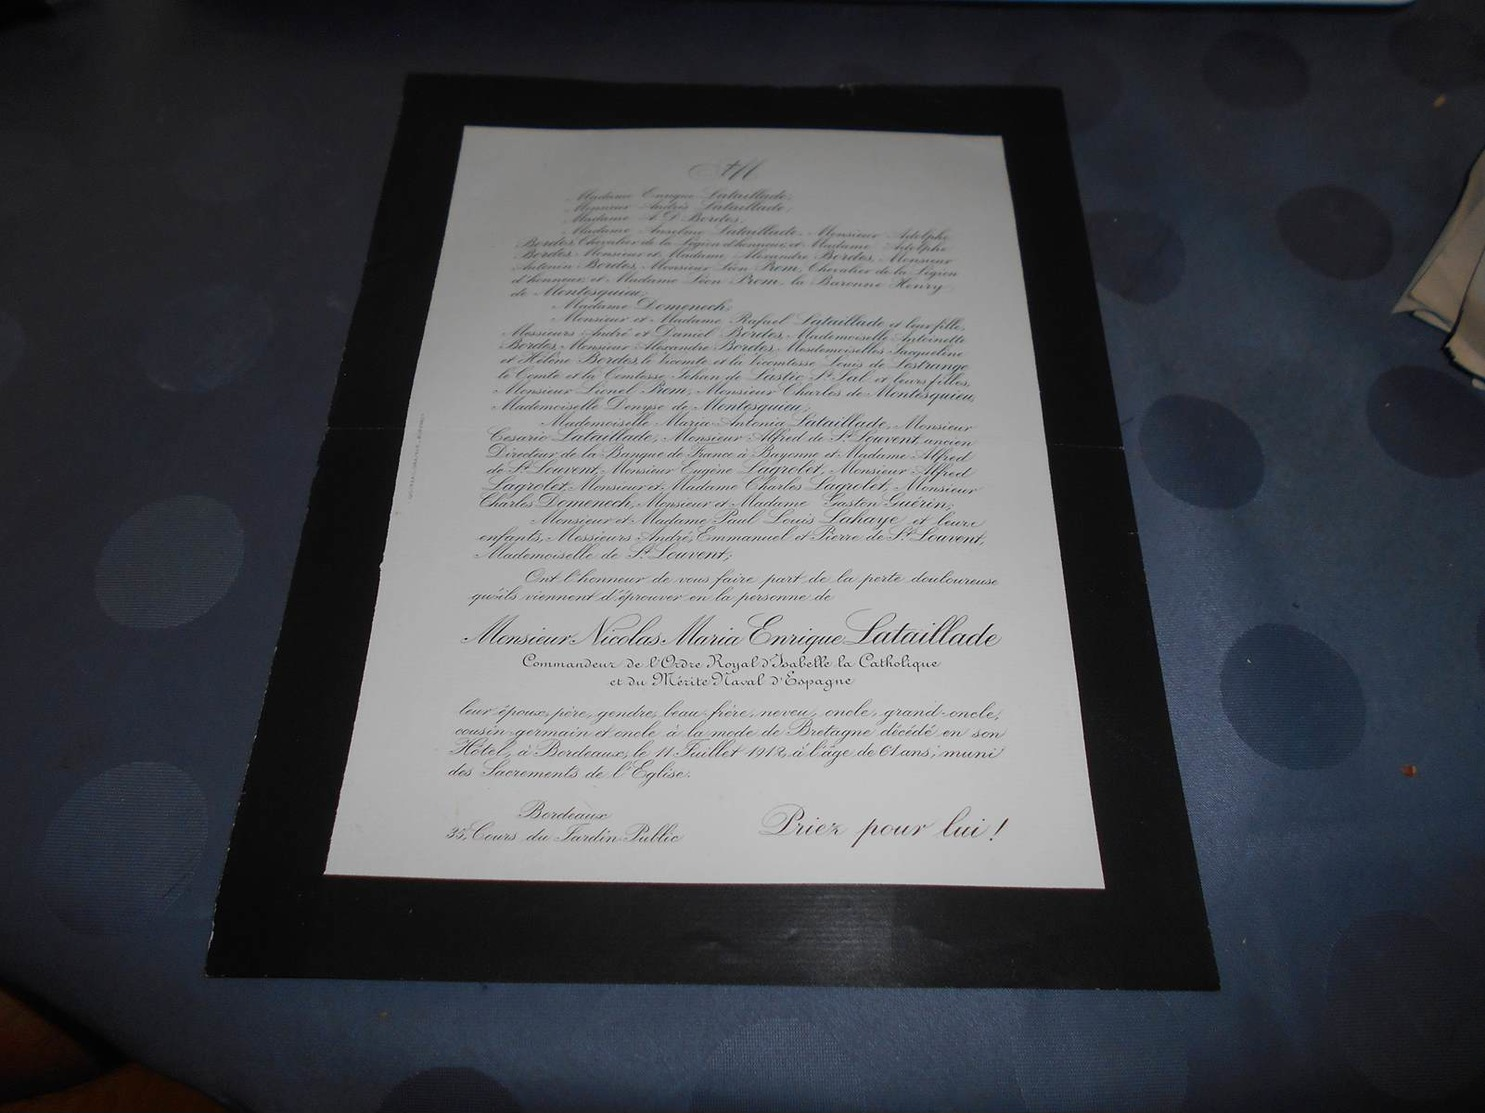 M
Madame Enrique Lataillade,
Monsieur Andrès Lataillade,
Madame A. D. Bordes,
Madame Anselme Lataillade, Monsieur Adolphe
Bordes, Chevalier de la Légion d'honneur, et Madame Adolphe
Bordes, Monsieur et Madame Alexandre Bordes, Monsieur
Antonin Bordes, Monsieur Léon Prom, Chevalier de la Légion
d'honneur, et Madame Léon Prom, la Baronne Henry
de Montesquieu,
Madame Domenech,
Monsieur et Madame Rafael Lataillade et leur fille,
Messieurs André et Daniel Bordes, Mademoiselle Antoinette
Bordes, Monsieur Alexandre Bordes, Mesdemoiselles Jacqueline
et Hélène Bordes, le Vicomte et la Vicomtesse Louis de Lestrange
le Comte et la Comtesse Jehan de Lastic St Jal et leurs filles,
Monsieur Lionel Prom, Monsieur Charles de Montesquieu,
Mademoiselle Denyse de Montesquieu,
Mademoiselle Maria-Antonia Lataillade, Monsieur
Cesario Lataillade, Monsieur Alfred de St Louvent, ancien
Directeur de la Banque de France à Bayonne et Madame Alfred
de St Louvent, Monsieur Eugène Lagrolet, Monsieur Alfred
Lagrolet, Monsieur et Madame Charles Lagrolet, Monsieur
Charles Domenech, Monsieur et Madame Gaston Guérin,
Monsieur et Madame Paul Louis Lahaye et leurs
enfants, Messieurs André, Emmanuel et Pierre de St Louvent,
Mademoiselle de St Louvent,
Ont l'honneur de vous faire part de la perte douloureuse
qu'ils viennent d'éprouver en la personne de
Monsieur Nicolas Maria Enrique Lataillade
Commandeur de l'Ordre Royal d'Isabelle la Catholique
et du Mérite Naval d'Espagne
leur époux, père, gendre, beau-frère, neveu, oncle, grand-oncle,
cousin-germain et oncle à la mode de Bretagne décédé en son
Hôtel, à Bordeaux, le 11 Juillet 1912, à l'âge de 61 ans, muni
des Sacrements de l'Eglise.
Bordeaux
35, Cours du Jardin-Public
Priez pour lui !